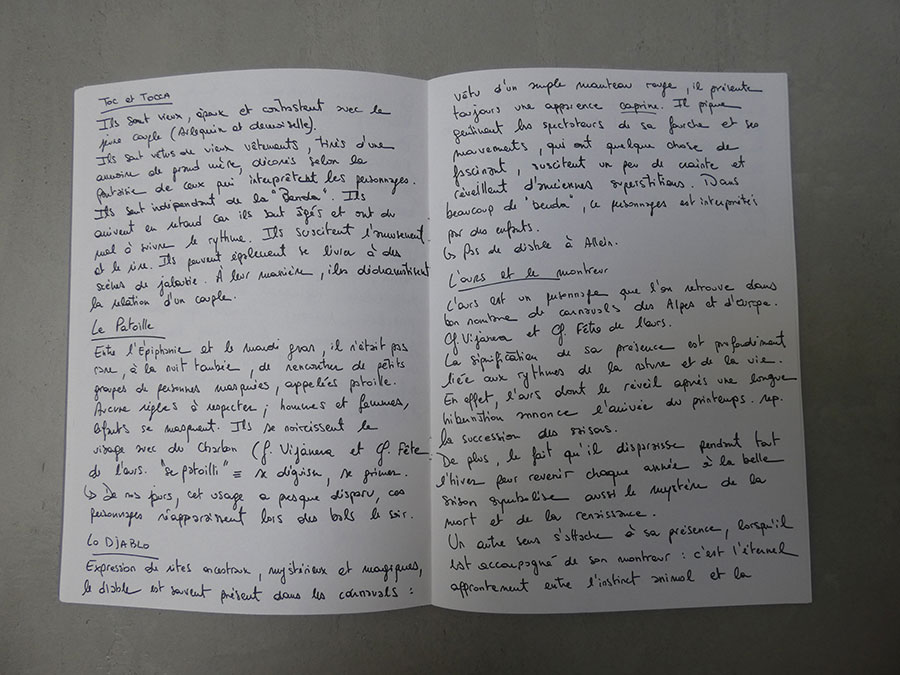 Toc et Tocca
Ils sont vieux, époux et contrastent avec le
jeune couple (Arlequin et demoiselle).
Ils sont vêtus de vieux vêtements, tirés d'une
armoire de grand mère, décorés selon la
fantaisie de ceux qui interprètent les personnages.
Ils sont indépendant de la "Benda". Ils
arrivent en retard car ils sont âgés et ont du
mal à suivre le rythme. Ils suscitent l'amusement
et le rire. Ils peuvent également se livrer à des
scènes de jalousie. À leur manière, ils dédramatisent
la relation d'un couple.
Le Patoille
Entre l'Épiphanie et le mardi gras, il n'était pas
rare, à la nuit tombée, de rencontrer de petits
groupes de personnes masquées, appelées patoille.
Aucune règles à respecter; hommes et femmes,
enfants se masquent. Ils se noircissent le
visage avec du Charbon (cf. Vijanera et cf. Fête
de l'ours. "se patoilli" = se déguiser, se grimer.
↳ De nos jours, cet usage a presque disparu, ces
personnages réapparaissent lors des bals le soir.
Lo Djablo
Expression de rites ancestraux, mystérieux et magiques,
le diable est souvent présent dans les carnavals :
vêtu d'un ample manteau rouge, il présente
toujours une apparence caprine. Il pique
gentiment les spectateurs de sa fourche et ses
mouvements, qui ont quelque chose de
fascinant, suscitent un peu de crainte et
réveillent d'anciennes superstitions. Dans
beaucoup de "benda", ce personnages est interprétés
par des enfants.
↳ Pas de diable à Allein.
L'ours et le montreur
L'ours est un personnage que l'on retrouve dans
bon nombre de carnavals des Alpes et d'Europe.
Cf. Vijanera et Cf. Fête de l'ours.
La signification de sa présence est profondément
liée aux rythmes de la nature et de la vie.
En effet, l'ours dont le réveil après une longue
hibernation annonce l'arrivée du printemps. rep.
la succession des saisons.
De plus, le fait qu'il disparaisse pendant tout
l'hiver pour revenir chaque année à la belle
saison symbolise aussi le mystère de la
mort et de la renaissance.
Un autre sens s'attache à sa présence, lorsqu'il
est accompagné de son montreur : c'est l'éternel
affrontement entre l'instinct animal et la